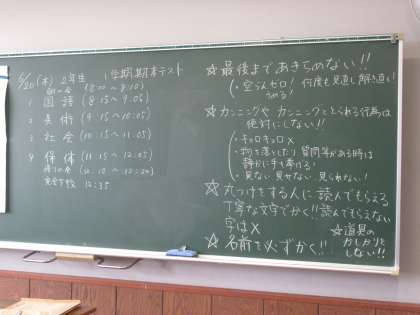 6/20(木) 2年生 1学期期末テスト
朝の会 (8:00〜8:10)
1 国語 (8:15〜9:05)
2 美術 (9:15〜10:05)
3 社会 (10:15〜11:05)
4 保体 (11:15〜12:05)
帰りの会 (12:10〜12:20)
完全下校 12:35
☆最後まであきらめない!!
(・空らんゼロ! 何度も見直し解き直し
うめる!
☆カンニングや カンニングととられる行為は
絶対にしない!!
・キョロキョロ×
・物を落としたり 質問等がある時は
静かに手を挙げる
・見ない 見せない 見られない!
☆丸つけをする人に読んでもらえる
丁寧な文字でかく!!読んでもらえない
字は×
☆名前を必ずかく!!
☆道具の
かしかりを
しない!!